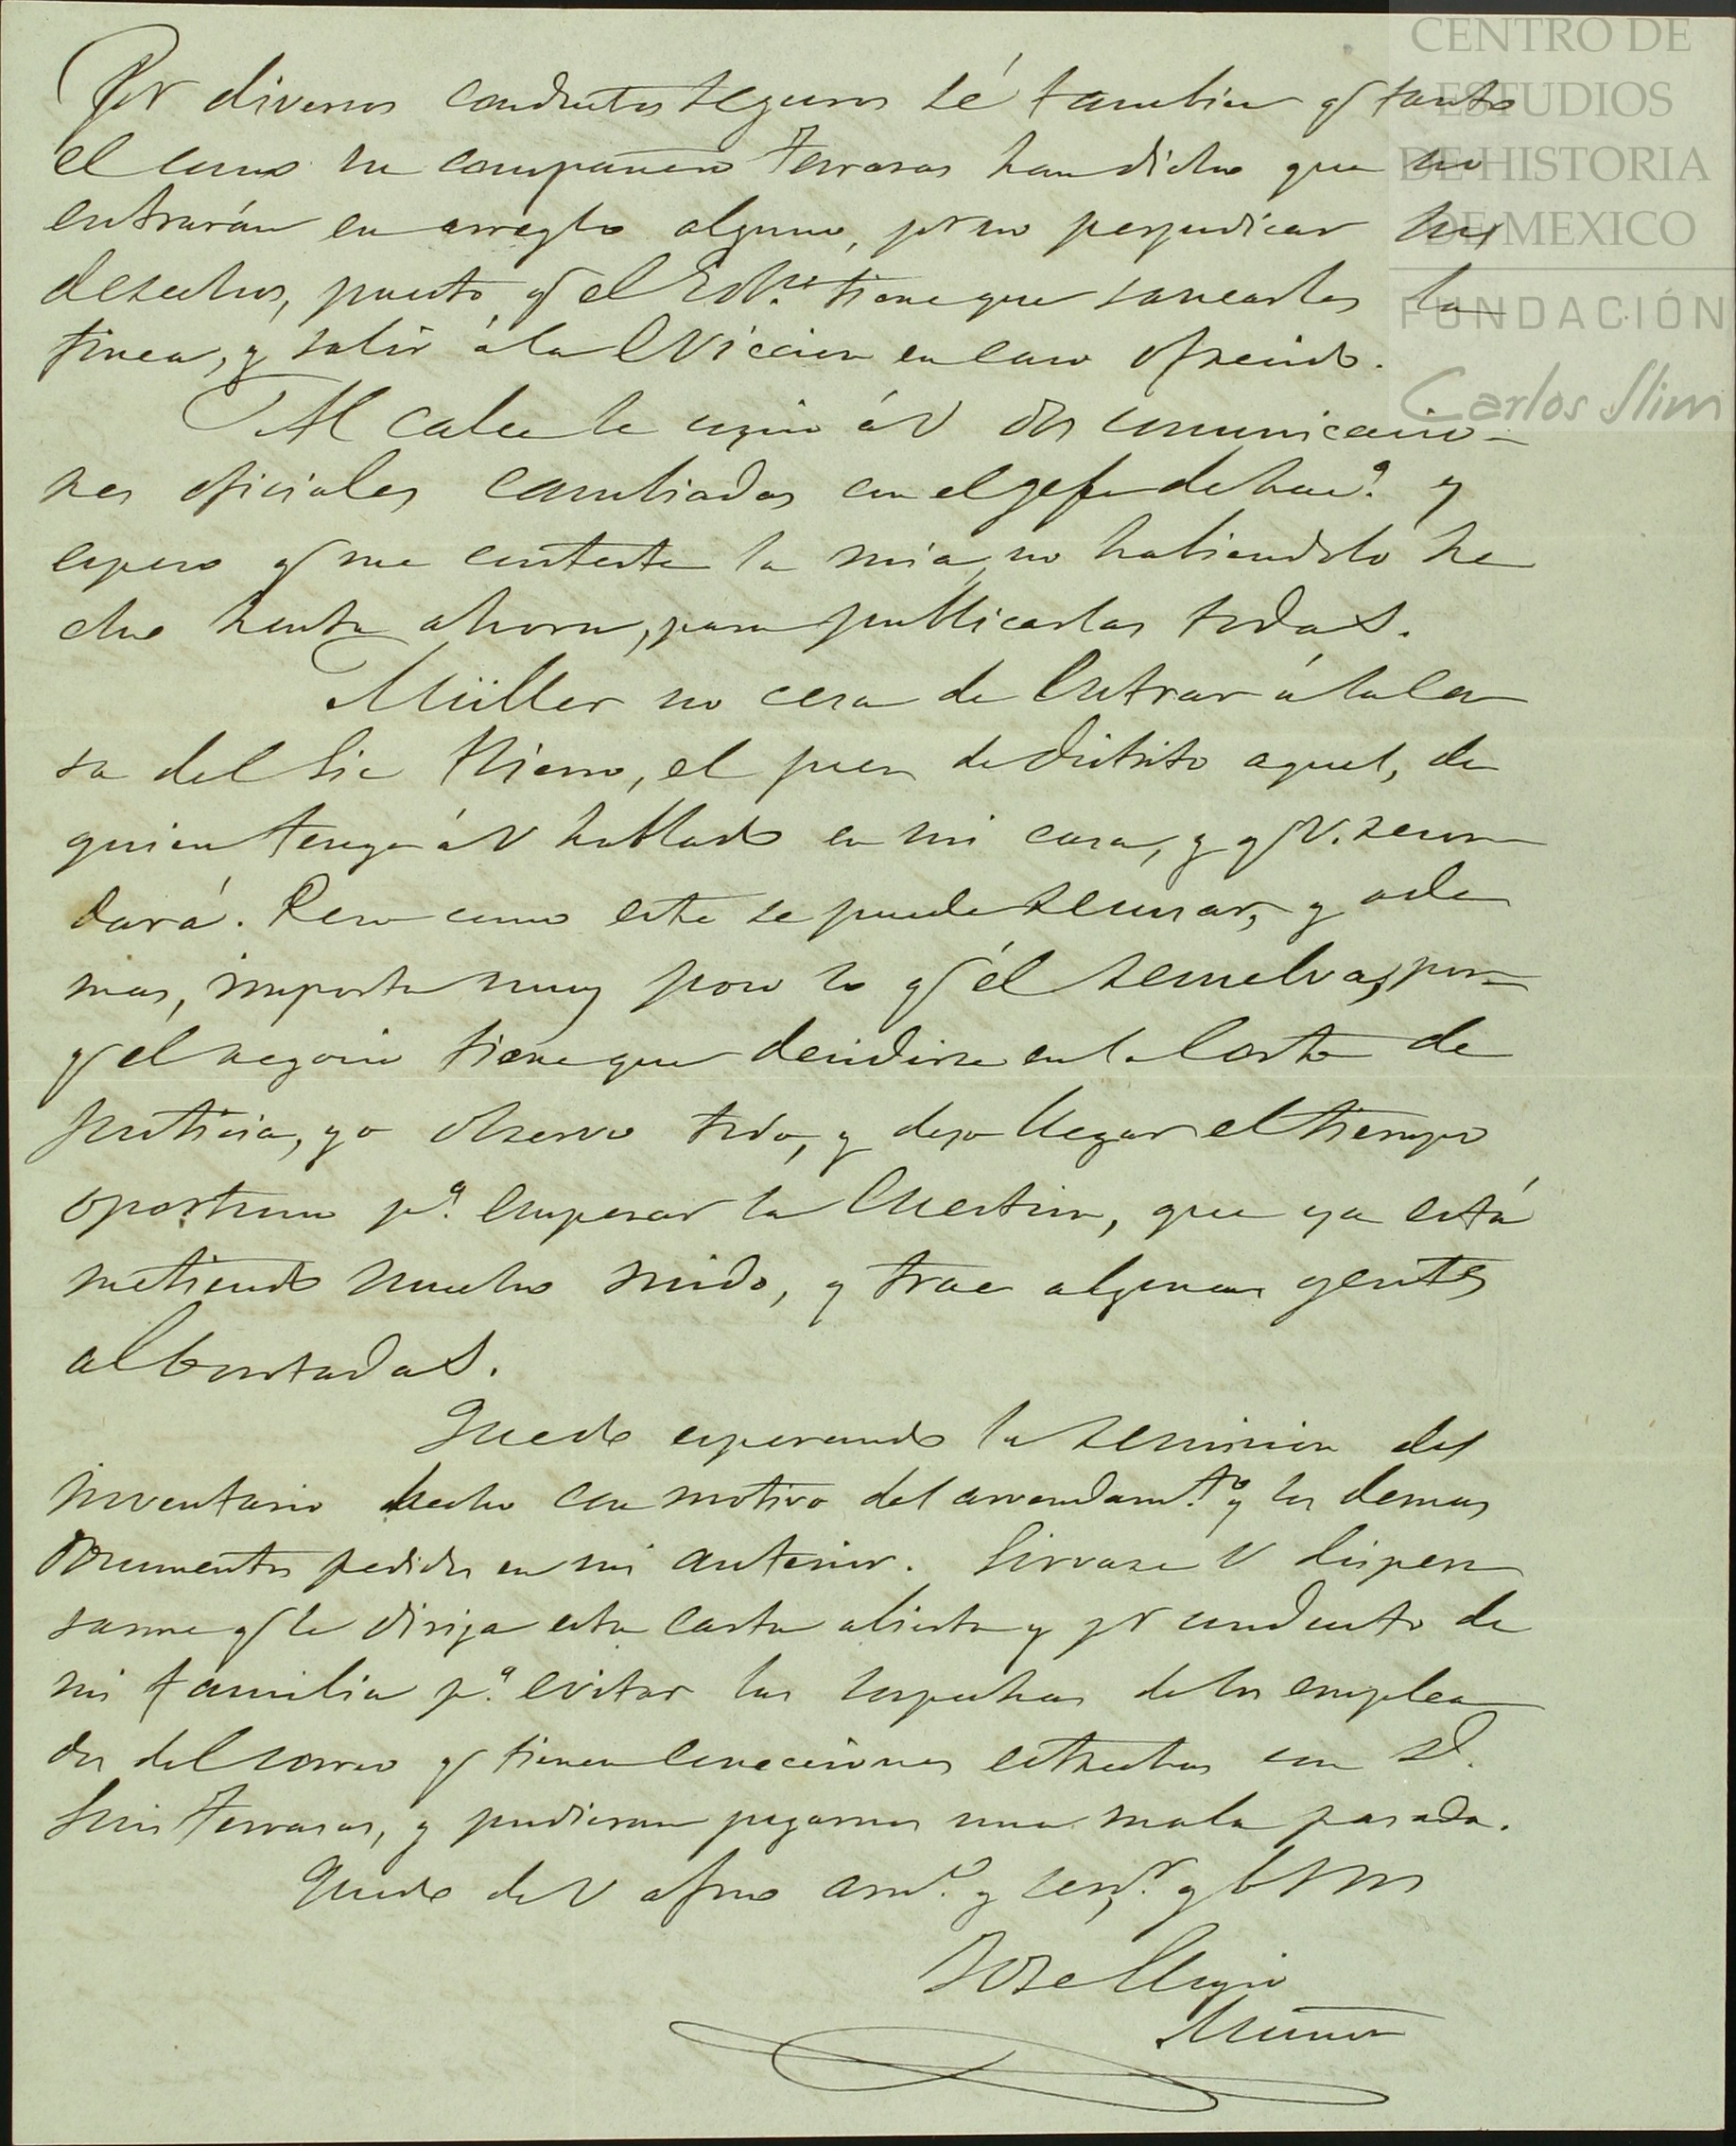 CENTRO DE
ESTUDIOS
DE HISTORIA
DE MEXICO
FUNDACIÓN
Carlos Slim
Por diversos conductos seguros sé tambien q.e tanto
el como su compañero Terrasas han dicho que no
entrarán en arreglo alguno, por no perjudicar sus
derechos, puesto q.e el Gob.no tiene que sanearles la
finca, y salir á la Eviccion en caso ofrecido.
Al calce le copio á V dos comunicacio-
nes oficiales cambiadas con el gefe de hac.a y
espero q.e me conteste la mia, no habiendolo he
cho hasta ahora, para publicarlas todas.
Müller no cesa de Entrar á la ca
sa del Lic Nierro, el juez de distrito aquel, de
quien tengo á V hablado en mi casa, y q.e V. recor
dará. Pero como este se puede recusar, y ade
mas, importa muy poco lo q.e él resuelva, por-
q.e el negocio tiene que decidirse en la Corte de
justicia, yo observo todo, y dejo llegar el tiempo
oportuno p.a empesar la Cuestion, que ya está
metiendo mucho ruido, y trae algunas gentes
albortadas.
Quedo esperando la remision del
inventario hecho con motivo del arrendam.to y los demas
documentos pedidos en mi anterior. Sirvase V dispen
sarme q.e le dirija esta carta abierta y por conducto de
mi familia p.a evitar las sospechas de los emplea
dos del correo q.e tienen Conecciones estrechas con D.
Luis Terrasas, y pudieran pegarnos una mala pasada.
Quedo de V afmo am.o y serv.r q b s m
Jose Eligio
Muñoz